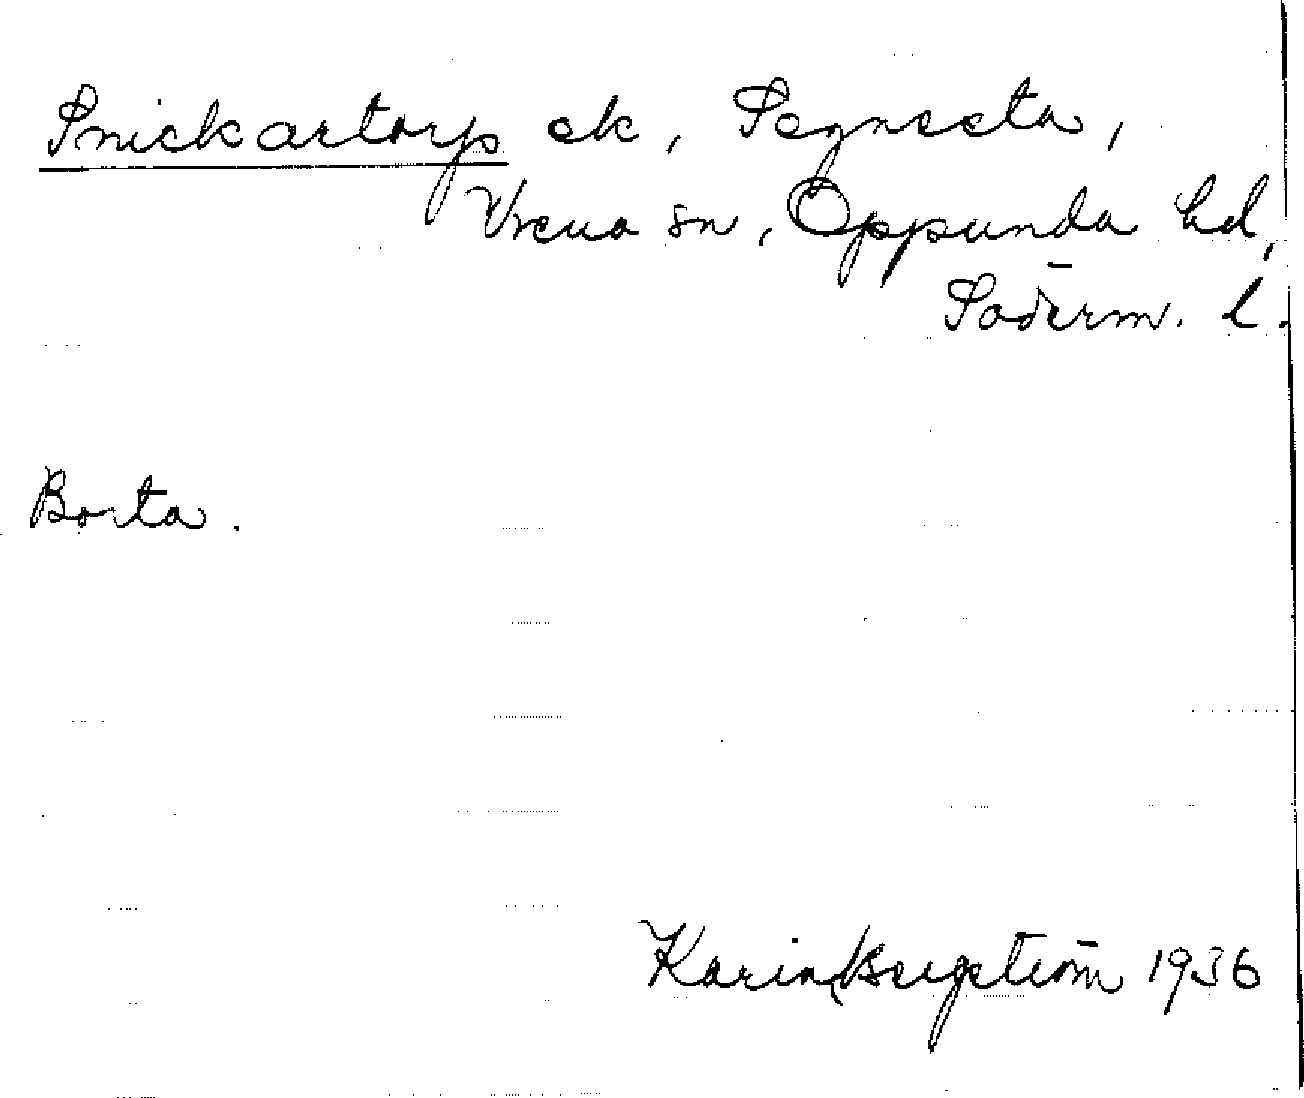 Snickartorp ek, Segnesta,
Vrena sn, Oppunda hd,
Söderm. l.
Borta.
Karin Bergström 1936